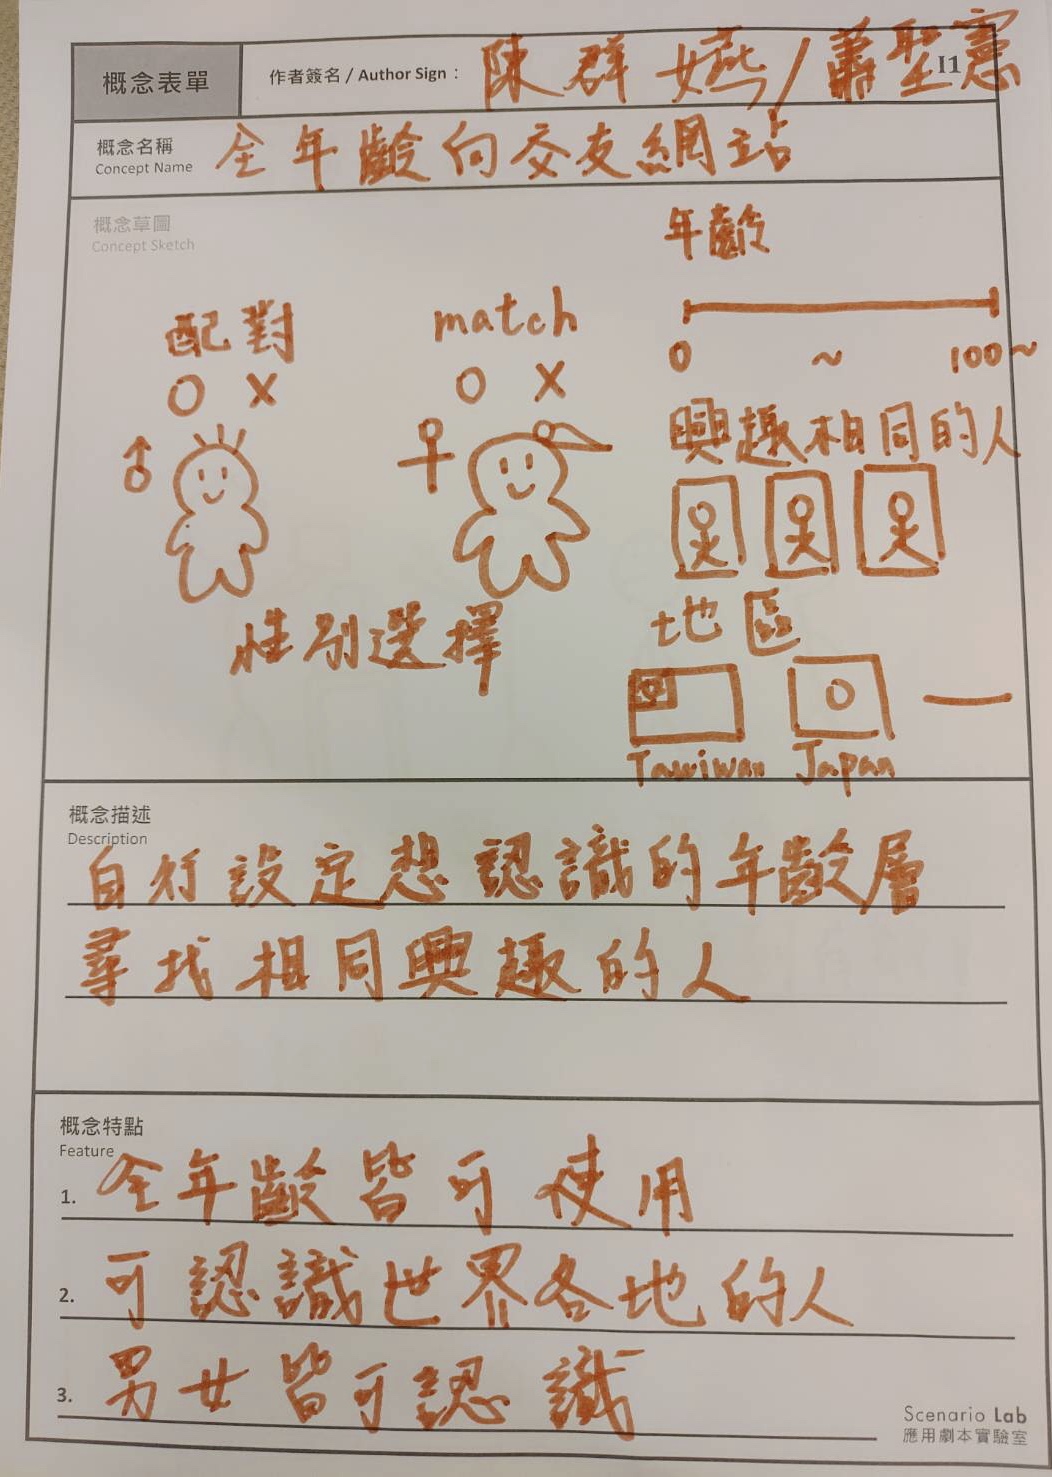 概念表單
作者簽名 / Author Sign：陳群嬿/蕭堅憲
I1
概念名稱
Concept Name
全年齡向交友網站
概念草圖
Concept Sketch
年齡
0 ~ 100~
配對
O X
match
O X
♂
♀
性別選擇
興趣相同的人
地區
Tawiwan Japan
概念描述
Description
自行設定想認識的年齡層
尋找相同興趣的人
概念特點
Feature
1. 全年齡皆可使用
2. 可認識世界各地的人
3. 男女皆可認識
Scenario Lab
應用劇本實驗室